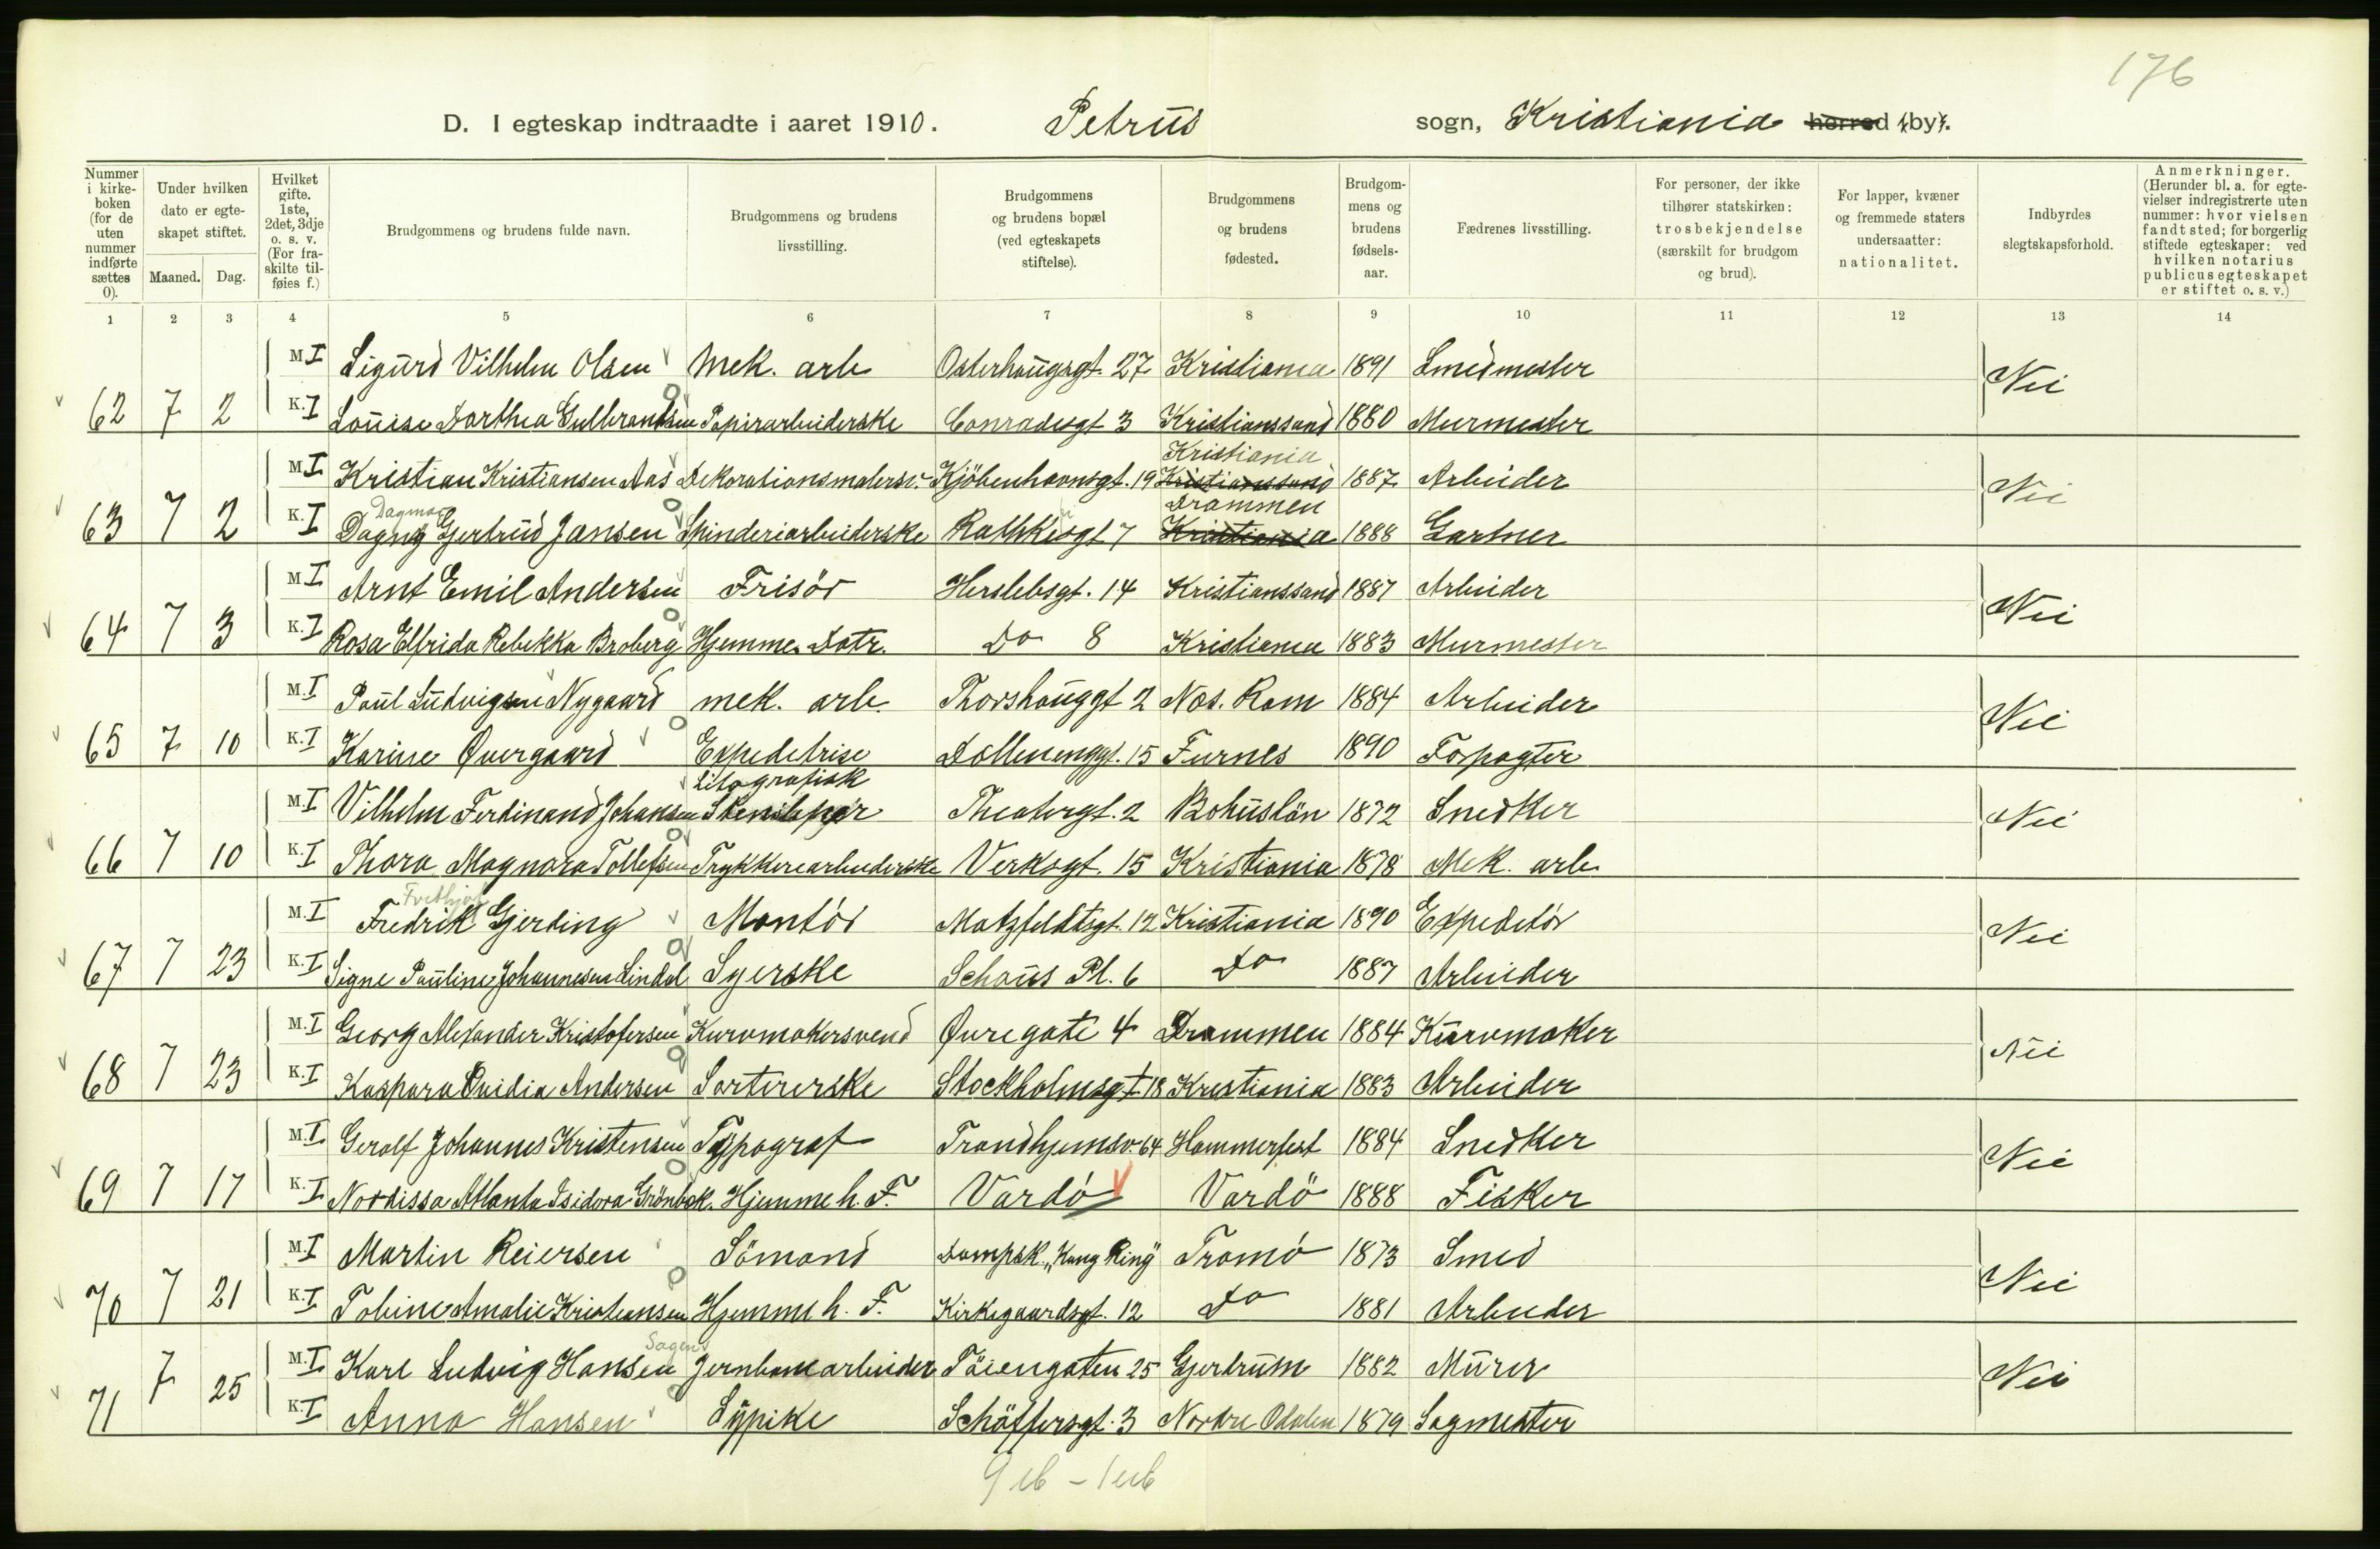 176
D. I egteskap indtraadte i aaret 1910. Petrus sogn, Kristiania herred (by).
Nummer i kirkeboken (for de uten nummer indførte sættes 0).
Under hvilken dato er egteskapet stiftet.
Maaned. Dag.
Hvilket gifte. 1ste, 2det, 3dje o. s. v. (For fraskilte tilføies f.)
Brudgommens og brudens fulde navn.
Brudgommens og brudens livsstilling.
Brudgommens og brudens bopæl (ved egteskapets stiftelse).
Brudgommens og brudens fødested.
Brudgommens og brudens fødselsaar.
Fædrenes livsstilling.
For personer, der ikke tilhører statskirken: trosbekjendelse (særskilt for brudgom og brud).
For lapper, kvæner og fremmede staters undersaatter: nationalitet.
Indbyrdes slegtskapsforhold.
Anmerkninger. (Herunder bl. a. for egtevielser indregistrerte uten nummer: hvor vielsen fandt sted; for borgerlig stiftede egteskaper: ved hvilken notarius publicus egteskapet er stiftet o. s. v.)
1 2 3 4 5 6 7 8 9 10 11 12 13 14
M I Sigurd Vilhelm Olsen Mek. arb Osterhougsgt. 27 Kristiania 1891 Smedmester Nei
62 7 2 K. I Louise Dorthea Gulbrandsen Papirarbeiderske Conradisgt 3 Kristianssand 1880 Murmester
Kristiania
M I Kristian Kristiansen Aas Dekorationsmalersv. Kjöbenhavnsgt. 19 Kristianssand 1887 Arbeider Nei
Dagmar Drammen
63 7 2 K. I Dagny Gjertrud Jansen Spinderiarbeiderske Rathkesgt 7 Kristiania 1888 Gartner
M I Arnt Emil Andersen Frisör Herslebsgt. 14 Kristianssand 1887 Arbeider Nei
64 7 3 K. I Rosa Elfrida Rebekka Broberg Hjemme. Datr. Do 8 Kristiania 1883 Murmester
M. I Paul Ludvigsen Nygaard mek. arb. Thorshauggt 2 Nes. Rom 1884 Arbeider Nei
65 7 10 K. I Karine Øvergaard Expeditrise Dollenenggt. 15 Furnes 1890 Forpagter
Litografisk
M. I Vilhelm Ferdinand Johansen Stensliper Theatergt. 2 Bohuslän 1872 Snedker Nei
66 7 10 K. I Thora Magnora Tollefsen Trykkeriarbeiderske Verksgt. 15 Kristiania 1878 Mek. arb.
Frethjof
M. I Fredrik Gjerding Montör Motzfeldtsgt. 12 Kristiania 1890 Expeditör Nei
67 7 23 K. I Signe Pauline Johannesen Lindal Syerske Schous Pl. 6 Do 1887 Arbeider
M. I Georg Alexander Kristofersen Kurvmakersvend Øvregate 4 Drammen 1884 Kurvmaker Nei
68 7 23 K. I Kaspara Ovidia Andersen Sortererske Stockholmsgt 18 Kristiania 1883 Arbeider
M. I Gerolf Johannes Kristensen Typograf Trondhjemsv. 64 Hammerfest 1884 Snedker Nei
69 7 17 K. I Nordissa Atlanta Isidora Grönbek. Hjemme h. F. Vardö Vardö 1888 Fisker
M. I Martin Reiersen Sömand Dampsk. "Kong Ring" Tromö 1873 Smed Nei
70 7 21 K. I Tobine Amalie Kristiansen Hjemme h. F. Kirkegaardsgt. 12 Do 1881 Arbeider
Sagene
M. I Karl Ludvig Hansen Jernbanearbeider Töiengaten 25 Gjerdrum 1882 Murer Nei
71 7 25 K. I Anna Hansen Sypike Schöffersgt. 3 Nordre Odalen 1879 Sagmester
9 ub - 1 ub